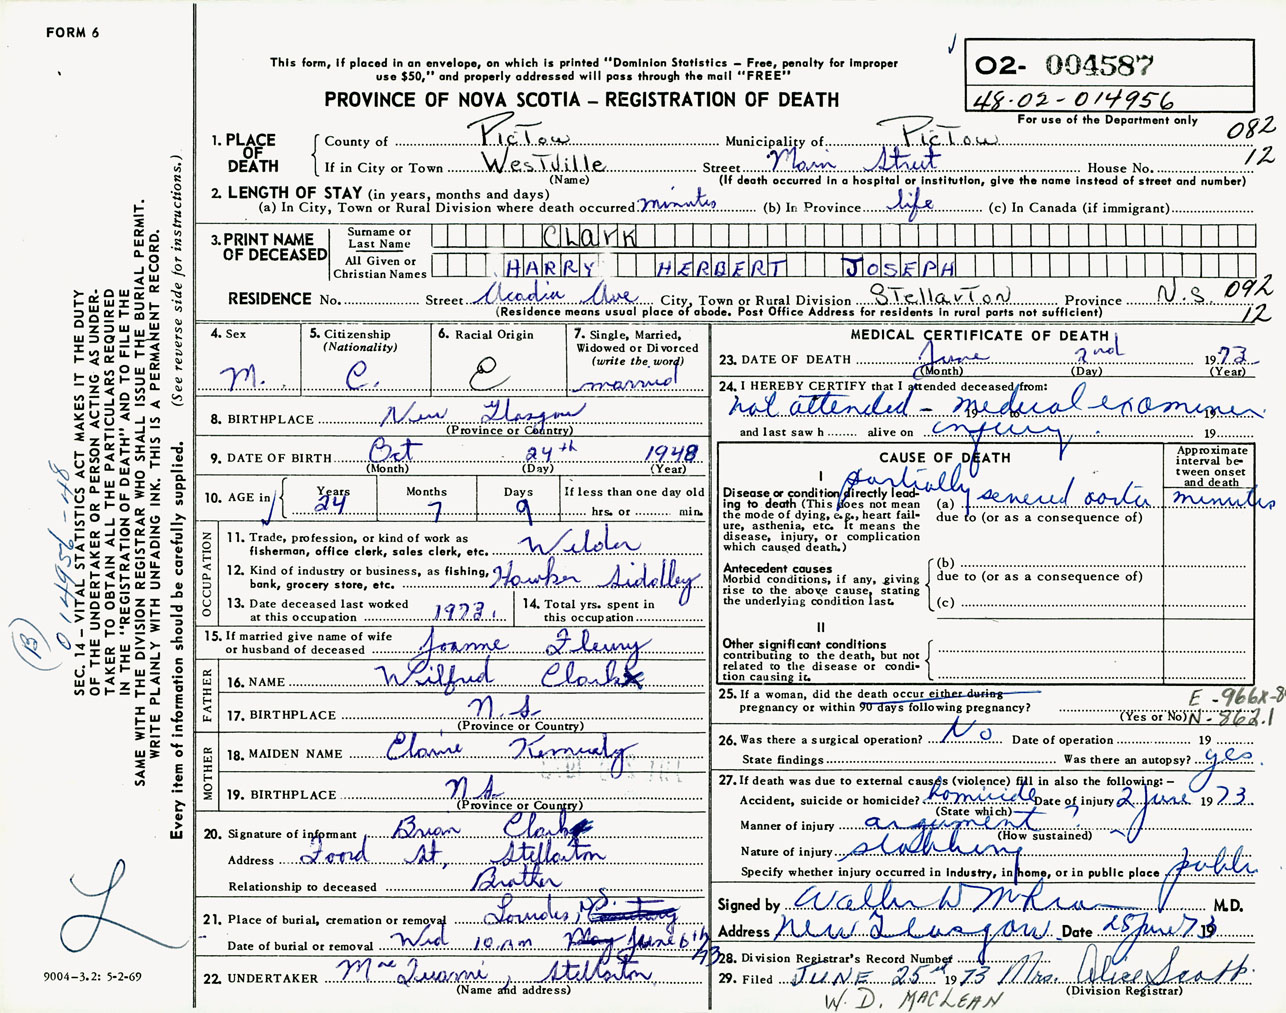 FORM 6
This form, if placed in an envelope, on which is printed "Dominion Statistics – Free, penalty for improper
use $50," and properly addressed will pass through the mail "FREE"
PROVINCE OF NOVA SCOTIA – REGISTRATION OF DEATH
O2- 004587
48-02-014956
For use of the Department only
082
12
1. PLACE OF DEATH
County of Pictou Municipality of Pictou
If in City or Town Westville Street Main Street House No.
(Name) (If death occurred in a hospital or institution, give the name instead of street and number)
2. LENGTH OF STAY (in years, months and days)
(a) In City, Town or Rural Division where death occurred minutes (b) In Province life (c) In Canada (if immigrant)
3. PRINT NAME OF DECEASED
Surname or Last Name Clark
All Given or Christian Names HARRY HERBERT JOSEPH
RESIDENCE No. Street Acadia Ave City, Town or Rural Division Stellarton Province N.S. 092
(Residence means usual place of abode. Post Office Address for residents in rural parts not sufficient) 12
4. Sex M.
5. Citizenship (Nationality) C.
6. Racial Origin
7. Single, Married, Widowed or Divorced (write the word) married
8. BIRTHPLACE New Glasgow
(Province or Country)
9. DATE OF BIRTH Oct 24th 1948
(Month) (Day) (Year)
10. AGE in Years 24 Months 7 Days 9 If less than one day old hrs. or min.
OCCUPATION
11. Trade, profession, or kind of work as fisherman, office clerk, sales clerk, etc. Welder
12. Kind of industry or business, as fishing, bank, grocery store, etc. Hawker Siddley
13. Date deceased last worked at this occupation 1973.
14. Total yrs. spent in this occupation
15. If married give name of wife or husband of deceased Joanne Fleury
FATHER
16. NAME Wilfred Clark
17. BIRTHPLACE N.S.
(Province or Country)
MOTHER
18. MAIDEN NAME Elaine Kennedy
19. BIRTHPLACE N.S.
(Province or Country)
20. Signature of informant Brian Clark
Address Foord St, Stellarton
Relationship to deceased Brother
21. Place of burial, cremation or removal Lourdes, N.S.
Date of burial or removal Wed 10 am May June 6th/73
22. UNDERTAKER Stellarton
(Name and address)
MEDICAL CERTIFICATE OF DEATH
23. DATE OF DEATH June 2nd 1973
(Month) (Day) (Year)
24. I HEREBY CERTIFY that I attended deceased from:
not attended – medical examiner 19 to 19
and last saw h alive on inquiry. 19
CAUSE OF DEATH
Approximate interval between onset and death
I
Disease or condition directly leading to death (This does not mean the mode of dying, e.g., heart failure, asthenia, etc. It means the disease, injury, or complication which caused death.)
(a) partially severed aorta minutes
due to (or as a consequence of)
Antecedent causes
Morbid conditions, if any, giving rise to the above cause, stating the underlying condition last.
(b)
due to (or as a consequence of)
(c)
II
Other significant conditions
contributing to the death, but not related to the disease or condition causing it.
25. If a woman, did the death occur either during pregnancy or within 90 days following pregnancy?
(Yes or No)
E-966X-8
N-862.1
26. Was there a surgical operation? No Date of operation 19
State findings Was there an autopsy? yes.
27. If death was due to external causes (violence) fill in also the following:–
Accident, suicide or homicide? homicide Date of injury 2 June 1973
(State which)
Manner of injury argument ?
(How sustained)
Nature of injury stabbing
Specify whether injury occurred in Industry, in home, or in public place public
Signed by M.D.
Address New Glasgow. Date 25 June 73 19
28. Division Registrar's Record Number
29. Filed JUNE 25th 1973 Mrs. Alice Scott
(Division Registrar)
W. D. MACLEAN
SEC. 14 – VITAL STATISTICS ACT MAKES IT THE DUTY
OF THE UNDERTAKER OR PERSON ACTING AS UNDER-
TAKER TO OBTAIN ALL THE PARTICULARS REQUIRED
IN THE "REGISTRATION OF DEATH" AND TO FILE THE
SAME WITH THE DIVISION REGISTRAR WHO SHALL ISSUE THE BURIAL PERMIT.
WRITE PLAINLY WITH UNFADING INK. THIS IS A PERMANENT RECORD.
Every item of information should be carefully supplied. (See reverse side for instructions.)
B
014956-48
9004-3.2: 5-2-69